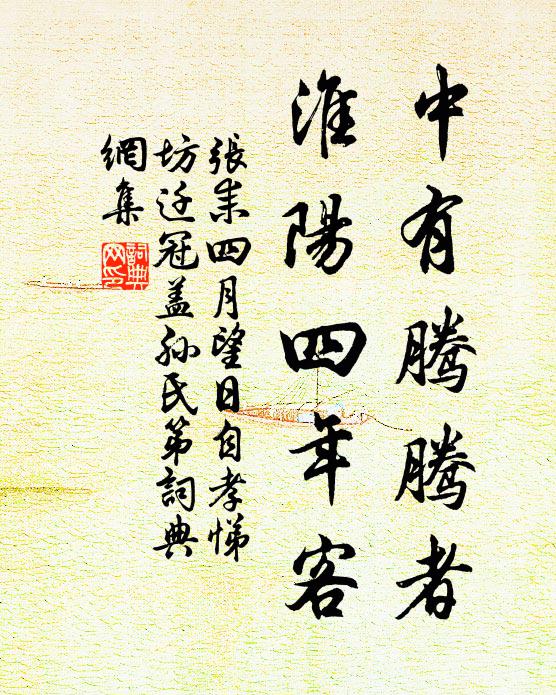 中有騰騰者
淮陽四年客
張耒四月望日自孝悌
坊迁冠盖孙氏第詞典
網集
詞典網印